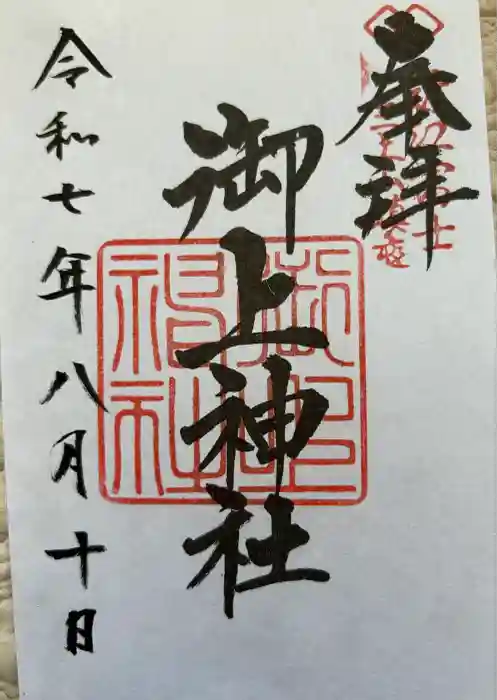 奉拝
御上神社
令和七年八月十日
御上神社